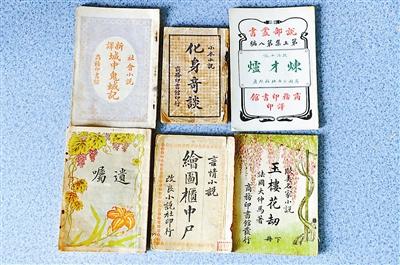 社會小說
新譯
城中鬼蜮記
商務印書館
小本小說
化身奇談
商務印書館發行
說部叢書
第五集第八編
煉才爐
商務印書館
譯印
遺囑
言情小說
繪圖櫃中尸
改良小說社印行
歐美名家小說
玉樓花劫
下冊
法國大仲馬著
商務印書館發行